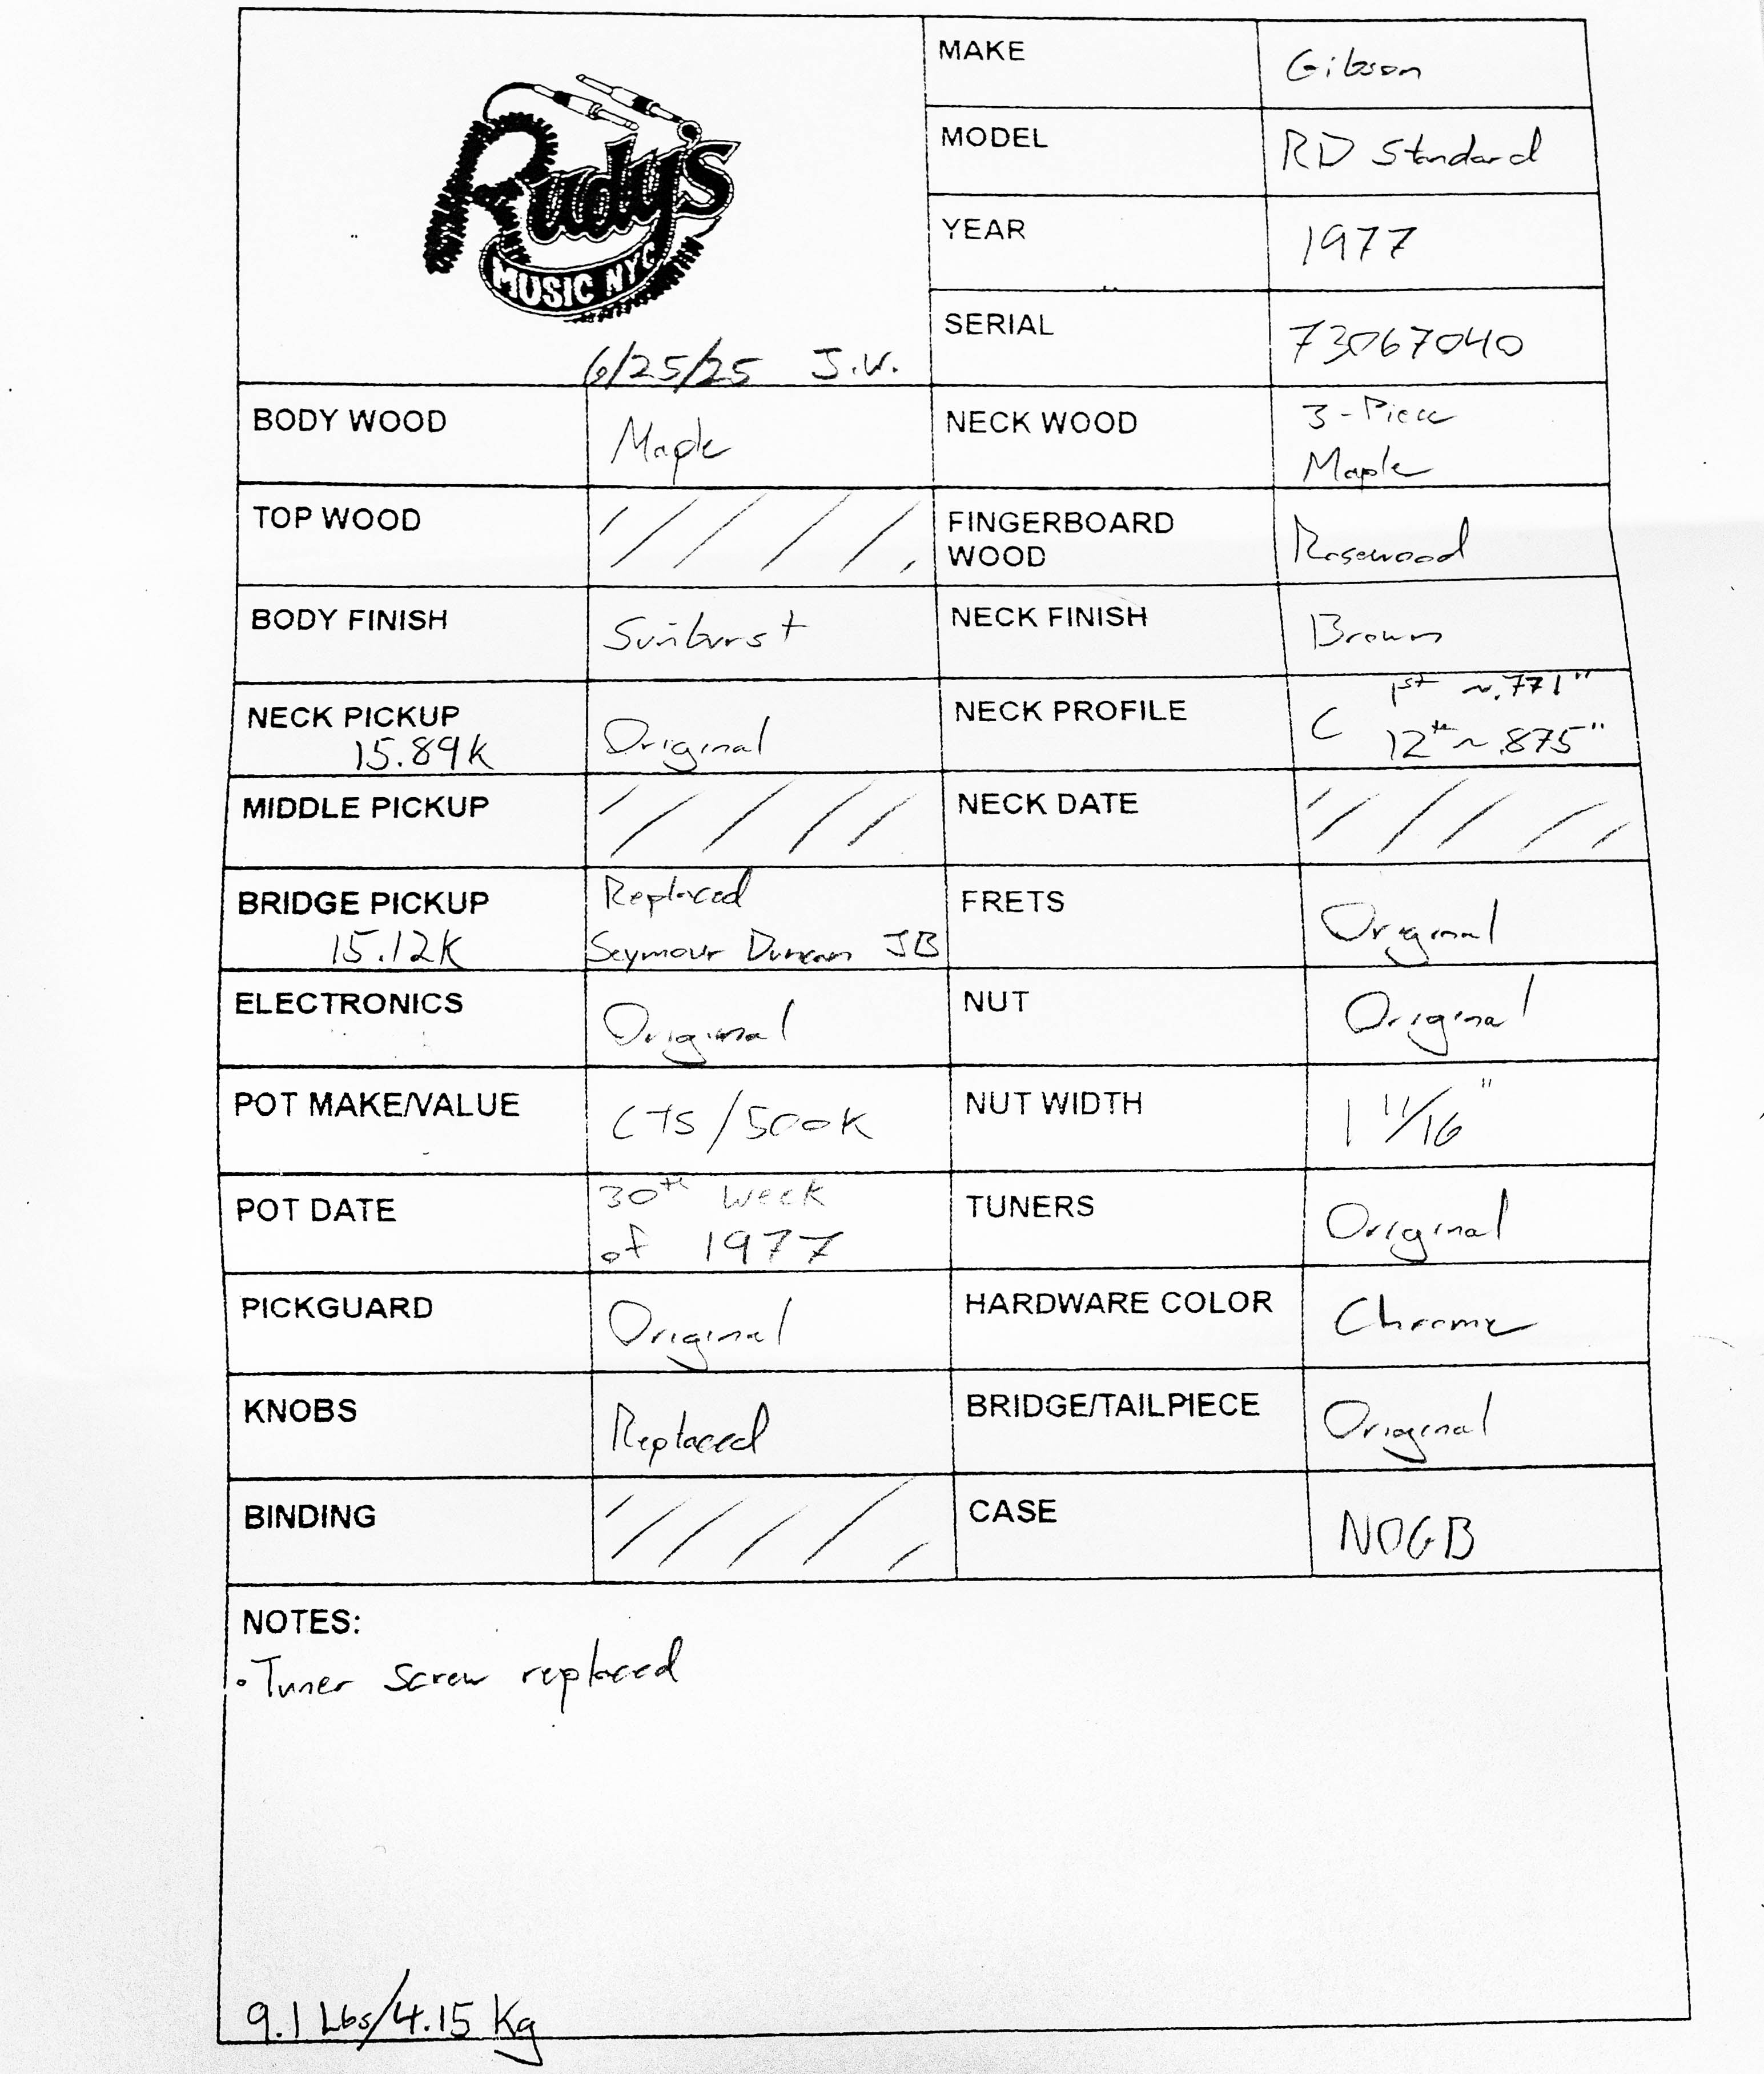 Rudy's
MUSIC NYC
6/25/25 J.V.
MAKE Gibson
MODEL RD Standard
YEAR 1977
SERIAL 73067040
BODY WOOD Maple
NECK WOOD 3-Piece
Maple
TOP WOOD
FINGERBOARD
WOOD Rosewood
BODY FINISH Sunburst
NECK FINISH Brown
NECK PICKUP
15.89K Original
NECK PROFILE C 1st ~.771"
12th ~.875"
MIDDLE PICKUP
NECK DATE
BRIDGE PICKUP Replaced
15.12K Seymour Duncan JB
FRETS Original
ELECTRONICS Original
NUT Original
POT MAKE/VALUE CTS/500K
NUT WIDTH 1 11/16"
POT DATE 30th week
of 1977
TUNERS Original
PICKGUARD Original
HARDWARE COLOR Chrome
KNOBS Replaced
BRIDGE/TAILPIECE Original
BINDING
CASE NOGB
NOTES:
• Tuner screw replaced
9.1 Lbs/4.15 Kg